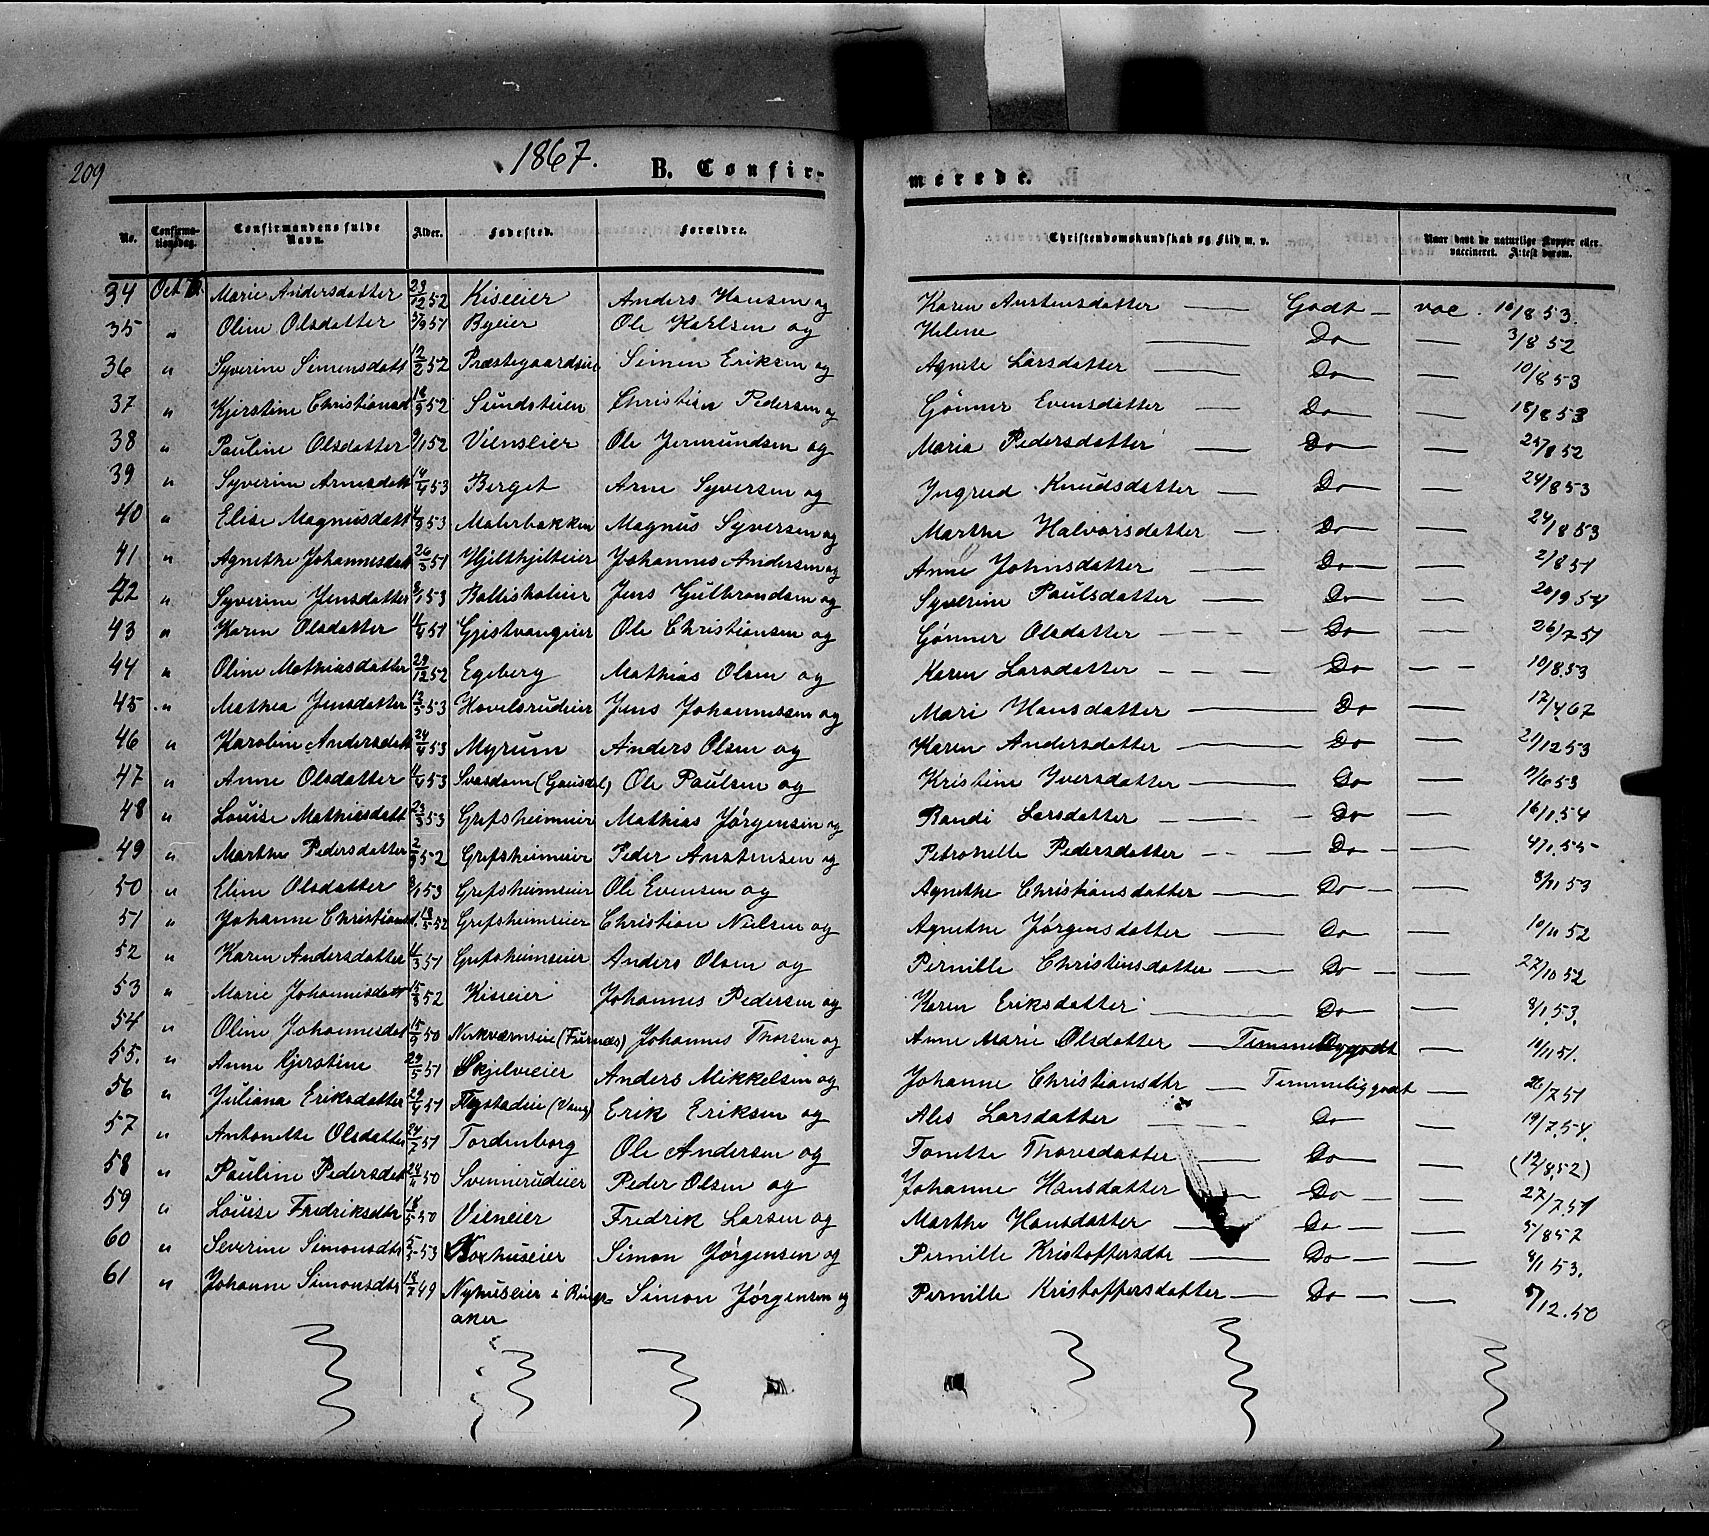 209
1867.
B. Confir-
merede.
No. Confirma-tionsdag. Confirmandens fulde Navn. Alder. Fødested. Forældre. Christendomskundskab og Flid m. v. Naar havt de naturlige Kopper eller vaccineret. Attest derom.
34 Oct Marie Andersdatter 29/12 52 Kiseeier Anders Hansen og Karen Austensdatter — Godt — vac. 10/8 53.
35 " Oline Olsdatter 51 Byeier Ole Karlsen og Helene — Do — 3/8 52
36 " Syverine Simensdatt 12/2 52 Præstegaardseie Simen Eriksen og Agnete Larsdatter — Do — 10/8 53
37 " Kjerstine Christiansd 16/9 52 Sundstuen Christian Pedersen og Gønner Evensdatter — Do — 18/8 53
38 " Pauline Olsdatter 9/1 52 Vienseier Ole Jermundsen og Maria Pedersdatter — Do — 25/8 52
39 " Syverine Arnesdatt 14/4 53 Berget Arne Syversen og Ingrud Knudsdatter — Do — 24/8 53
40 " Elise Magnusdatt 4/3 53 Malerbakken Magnus Syversen og Marthe Halvorsdatter — Do — 24/8 53
41 " Agnethe Johannesdat 26/5 51 Hjelthjelteier Johannes Andersen og Anne Johnsdatter — Do — 2/8 51
42 " Syverine Jensdatter 8/1 53 Ballisholeier Jens Gulbrandsen og Syverine Paulsdatter — Do — 20/9 54
43 " Karen Olsdatter 11/4 51 Gjistvangeier Ole Christiansen og Gønner Olsdatter — Do — 26/7 51
44 " Oline Mathiasdatter 29/12 52 Egeberg Mathias Olsen og Karen Larsdatter — Do — 10/8 53
45 " Mathea Jensdatter 13/5 53 Havelsrudeier Jens Johannessen og Mari Hansdatter — Do — 17/4 67
46 " Karoline Andersdatt 24/4 53 Myrum Anders Olsen og Karen Andersdatter — Do — 21/12 53
47 " Anne Olsdatter 11/4 53 Svasdom (Gausdal) Ole Paulsen og Kristine Iversdatter — Do — 17/6 53
48 " Louise Mathiasdatt 23/3 53 Grefsheimeier Mathias Jørgensen og Randi Larsdatter — Do — 16/1 54
49 " Marthe Pedersdatter 2/9 52 Grefsheimeier Peder Austensen og Petronelle Pedersdatter — Do — 4/1 55
50 " Eline Olsdatter 8/1 53 Grefsheimseier Ole Evensen og Agnethe Christiansdatter — Do — 8/11 53
51 " Johanne Christiansd. 18/5 52 Grefsheimseier Christian Nielsen og Agnethe Jørgensdatter — Do — 10/11 52
52 " Karen Andersdatter 11/3 51 Grefsheimseier Anders Olsen og Pernille Christiansdatter — Do — 27/10 52
53 " Marie Johannesdatt 15/3 52 Kiseeier Johannes Pedersen og Karen Eriksdatter — Do — 8/1 53.
54 " Oline Johannesdat 15/9 50 Neskværnseie (Furnæs) Johannes Thorsen og Anne Marie Olsdatter — Temmeliggodt — 10/11 51.
55. " Anne Kjerstine 29/5 51 Skjelveeier Anders Mikkelsen og Johanne Christiansdtr — Temmeliggodt — 26/7 51
56 " Juliana Eriksdatter 29/4 51 (Vang) Erik Eriksen og Ales Larsdatter — Do — 19/7 54.
57 " Antonette Olsdatter 24/7 51 Tordenborg Ole Andersen og Tonette Thoresdatter — Do — (12/8 52)
58 " Pauline Pedersdat 24/4 50 Svennerudeier Peder Olsen og Johanne Hansdatter — Do — 27/7 51
59 " Louise Fredriksdtr 18/5 50 Vieneier Fredrik Larsen og Marthe Hansdatter — Do — 5/8 52
60 " Severine Simonsdtr 5/2 53 Simon Jørgensen og Pernille Kristoffersdtr — Do — 8/1 53.
61 " Johanne Simonsdtr 18/7 49 Nyhuseier i Rings- Simon Jørgensen og Pernille Kristoffersdatter — Do — 5/12. 50
aker